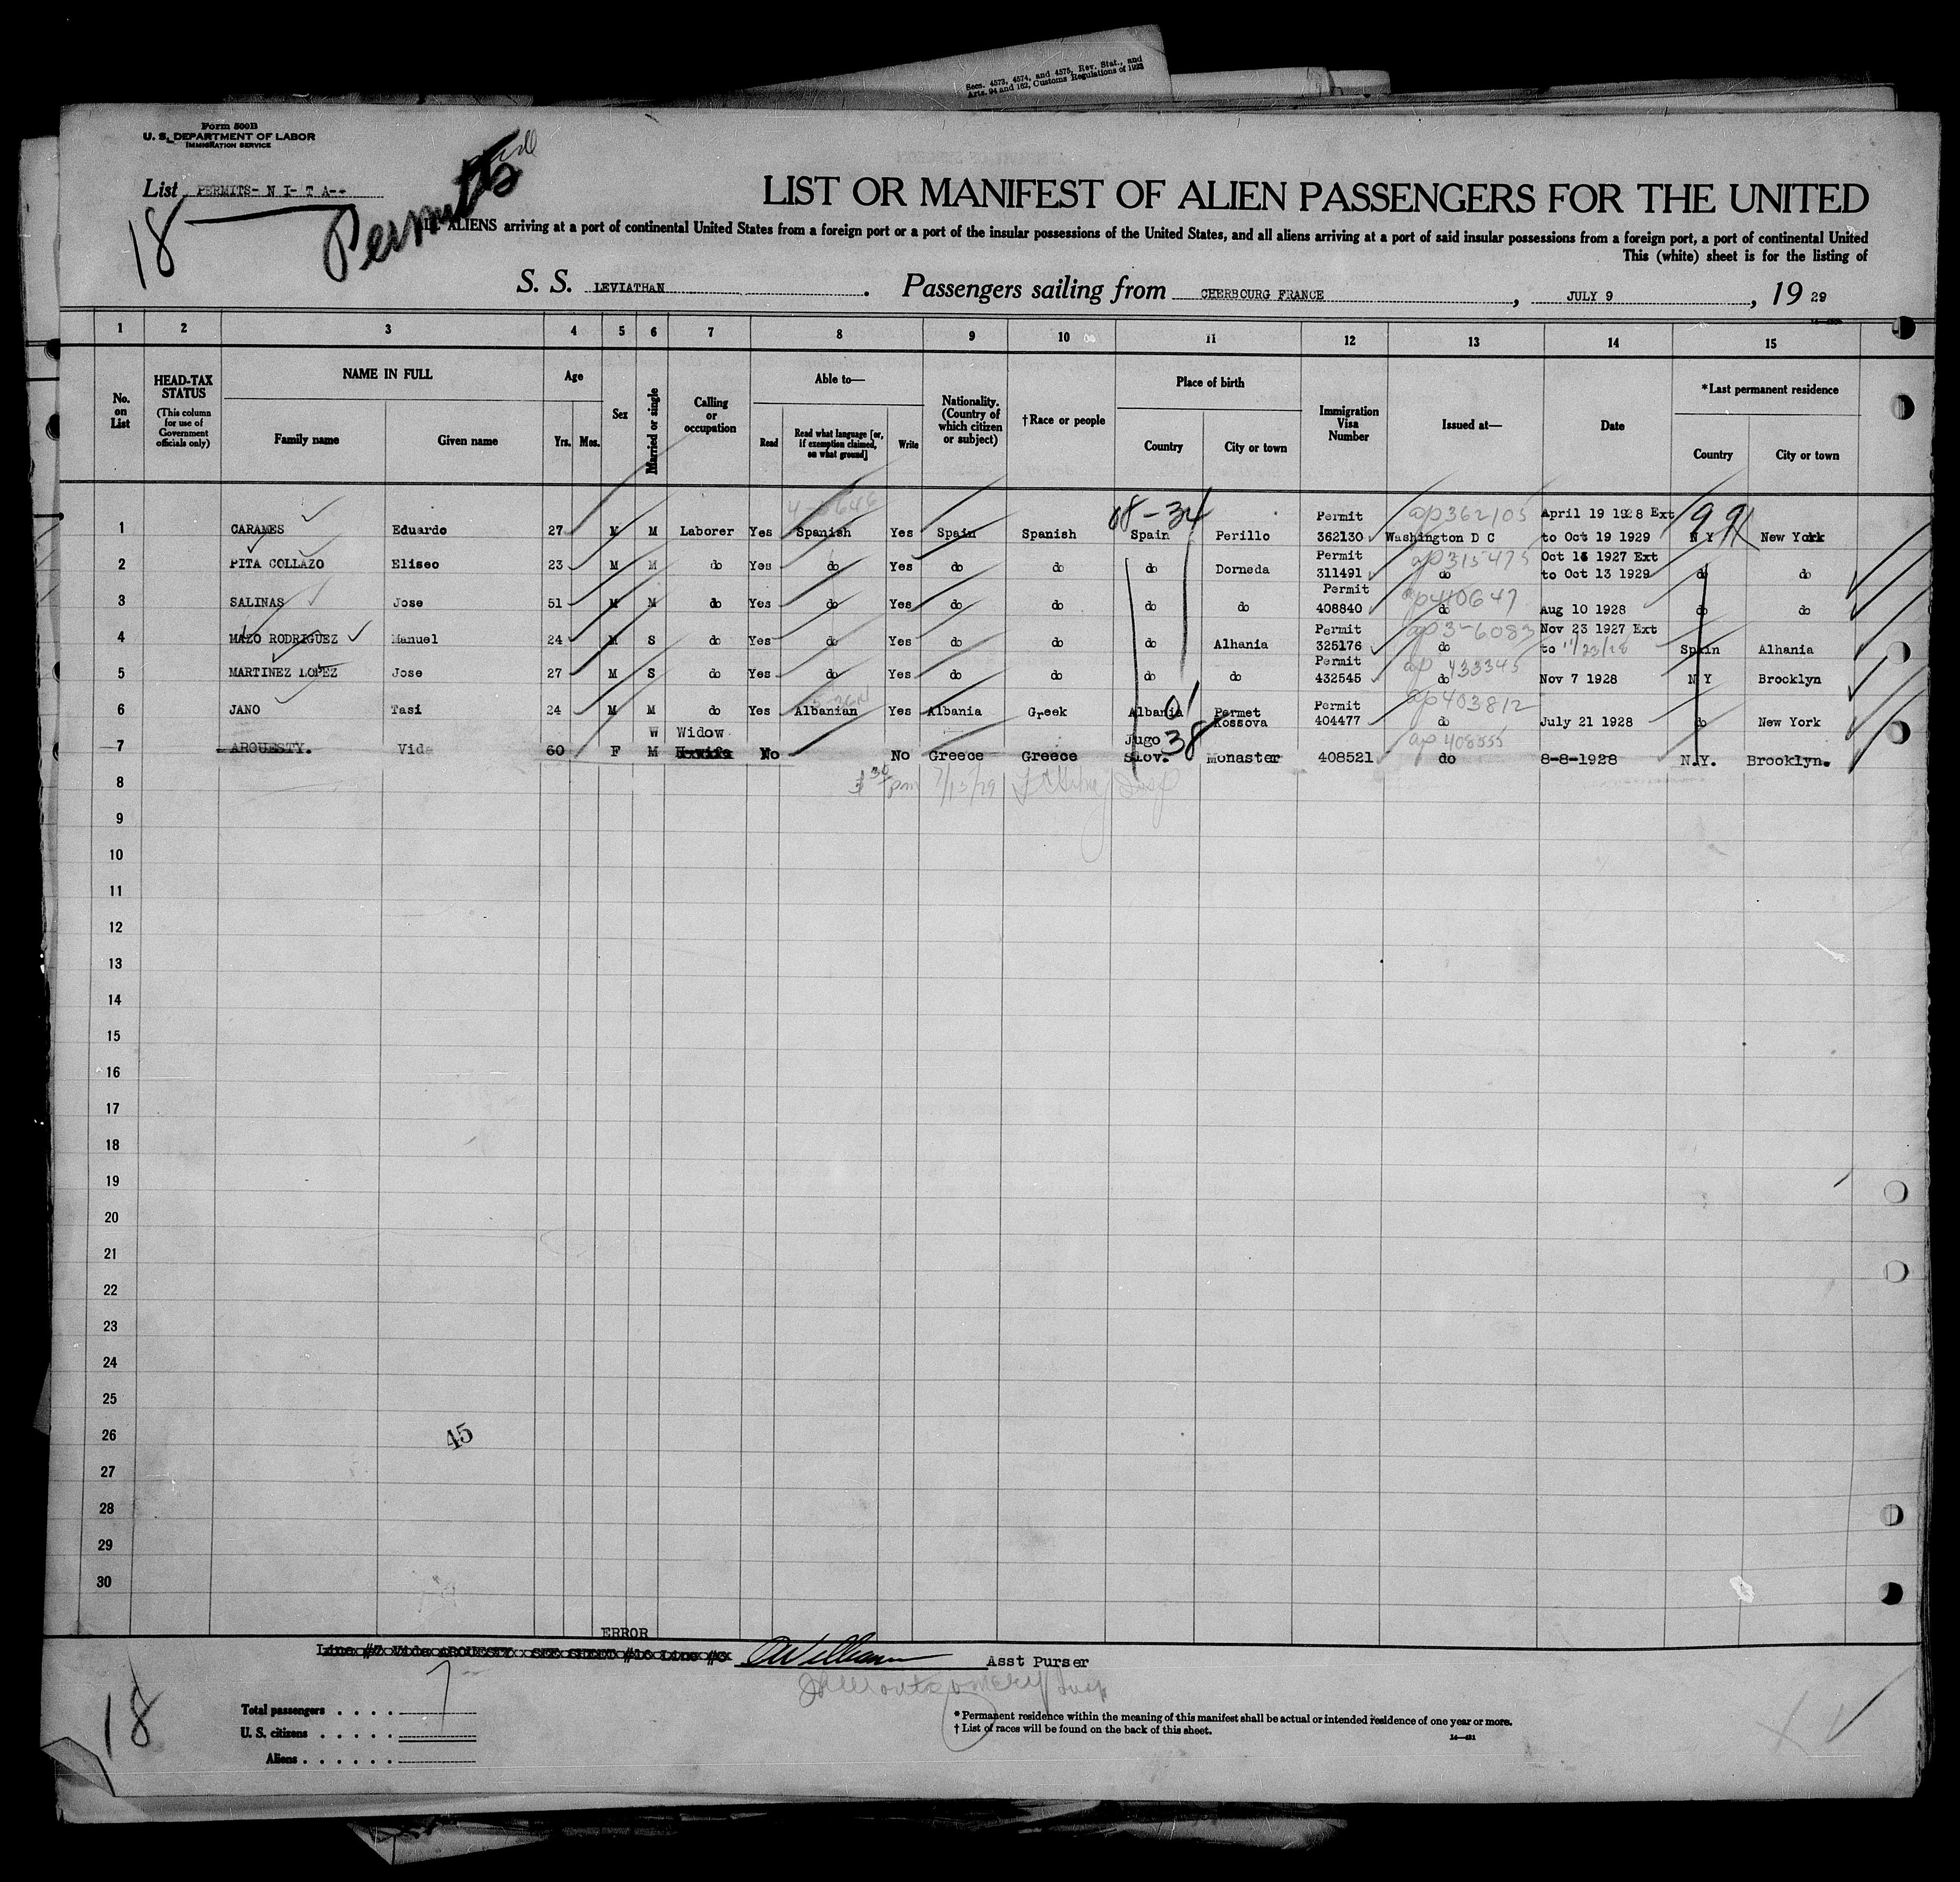 Secs. 4573, 4574, and 4575, Rev. Stat., and
Arts. 94 and 162, Customs Regulations of 1923
Form 500B
U. S. DEPARTMENT OF LABOR
IMMIGRATION SERVICE
List PERMITS- N I- T A--
18
Permits
LIST OR MANIFEST OF ALIEN PASSENGERS FOR THE UNITED
ALL ALIENS arriving at a port of continental United States from a foreign port or a port of the insular possessions of the United States, and all aliens arriving at a port of said insular possessions from a foreign port, a port of continental United
This (white) sheet is for the listing of
S. S. LEVIATHAN. Passengers sailing from CHERBOURG FRANCE, JULY 9, 19 29
1 2 3 4 5 6 7 8 9 10 11 12 13 14 15
No. on List
HEAD-TAX STATUS
(This column for use of Government officials only)
NAME IN FULL
Family name Given name
Age
Yrs. Mos.
Sex
Married or single
Calling or occupation
Able to—
Read
Read what language [or, if exemption claimed, on what ground]
Write
Nationality. (Country of which citizen or subject)
†Race or people
Place of birth
Country City or town
Immigration Visa Number
Issued at—
Date
*Last permanent residence
Country City or town
68-34 Permit ap362105 April 19 1928 Ext 99
1 CARAMES Eduardo 27 M M Laborer Yes Spanish Yes Spain Spanish Spain Perillo 362130 Washington D C to Oct 19 1929 N Y New York
Permit ap315475 Oct 13 1927 Ext
2 PITA COLLAZO Eliseo 23 M M do Yes do Yes do do do Dorneda 311491 do to Oct 13 1929 do do
Permit ap410647
3 SALINAS Jose 51 M M do Yes do Yes do do do do 408840 do Aug 10 1928 do do
Permit Nov 23 1927 Ext
4 MAZO RODRIGUEZ Manuel 24 M S do Yes do Yes do do do Alhania 325176 do to 11/23/28 Spain Alhania
Permit ap 433345
5 MARTINEZ LOPEZ Jose 27 M S do Yes do Yes do do do do 432545 do Nov 7 1928 N Y Brooklyn
Permit ap403812
6 JANO Tasi 24 M M do Yes Albanian Yes Albania Greek Albania Permet 404477 do July 21 1928 do New York
W Widow Jugo 38 Kossova ap 408555
7 AROUESTY. Vida 60 F M H-wife No No Greece Greece Slov. Monaster 408521 do 8-8-1928 N.Y. Brooklyn.
8
9
10
11
12
13
14
15
16
17
18
19
20
21
22
23
24
25
26
27
28
29
30
45
ERROR
Line #7 Vida AROUESTY SEE SHEET #16 Line #3
Asst Purser
18
Total passengers . . . . 7
U. S. citizens . . . . .
Aliens . . . . . .
* Permanent residence within the meaning of this manifest shall be actual or intended residence of one year or more.
† List of races will be found on the back of this sheet.